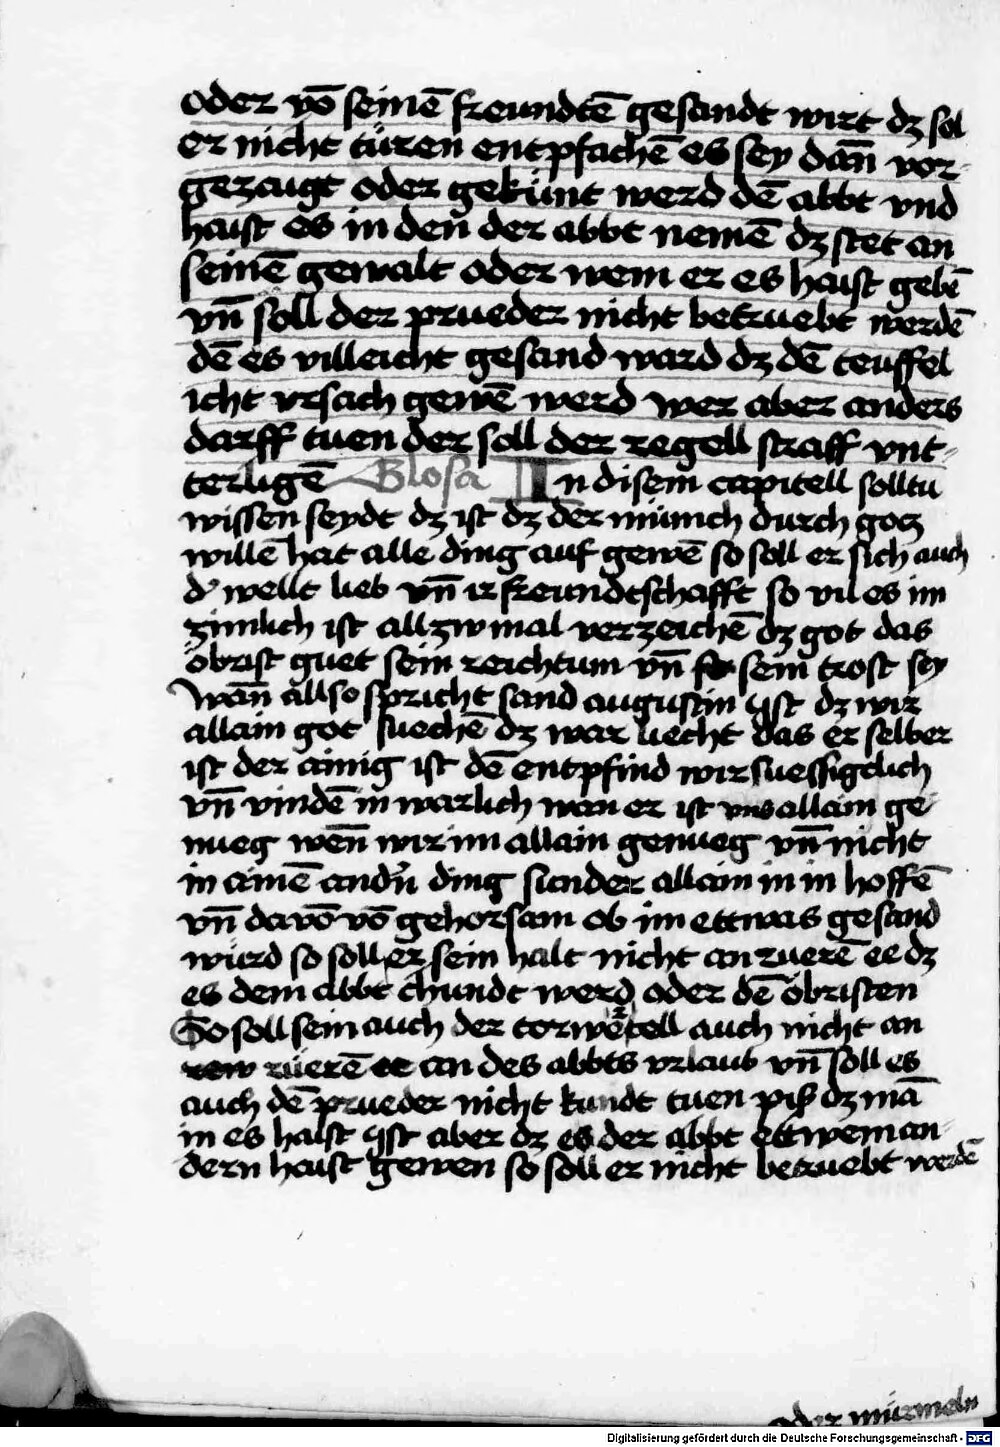 oder vō seinē freundtē gesandt wirt dz sol
er nicht türen entpfachē es sey dan̄ vor-
gezaigt oder gekünt werd dē abbt vnd
haist es in den̄ der abbt nemē dz stet an
seinē gewalt oder wem er es haist gebē
vn̄ soll der prueder nicht betruebt werdē
dē es villeicht gesand ward dz dē teuffel
icht vrsach gewē werd wer aber anders
darff tuen der soll der regell straff vnt-
terligē Glosa In disem capitell solltu
wissen seydt dz ist dz der münich durch gotz
willē hat alle ding auf gewē so soll er sich auch
d' wellt lieb vn̄ ir freundtschafft so vil es im
zimlich ist allzw mal verzeichē dz got das
öbrist guet sein reichtum vn̄ sein trost sey
wan̄ allso spricht sand augustin ist dz wir
allain got suechē dz war liecht das er selber
ist der ainig ist dē entpfind wir suessigclich
vn̄ vindē in warlich wan er ist vns allain ge-
nueg wen̄ wir im allain genueg vn̄ nicht
in ainē andn̄ ding sunder allain in in hoffē
vn̄ davō vō gehorsam ob im ettwas gesand
würd so soll er sein halt nicht an zuerē ee dz
es dem abbt chundt werd oder dē öbristen
So soll sein auch der torwertell auch nicht an
rüerē ee an des abbts vrlaub vn̄ soll es
auch dē prueder nicht kundt tuen piß dz mā
in es haist ist aber dz es der abbt ettwem an-
dern haist gewen so soll er nicht betruebt werdē
oder mürmeln
Digitalisierung gefördert durch die Deutsche Forschungsgemeinschaft - DFG